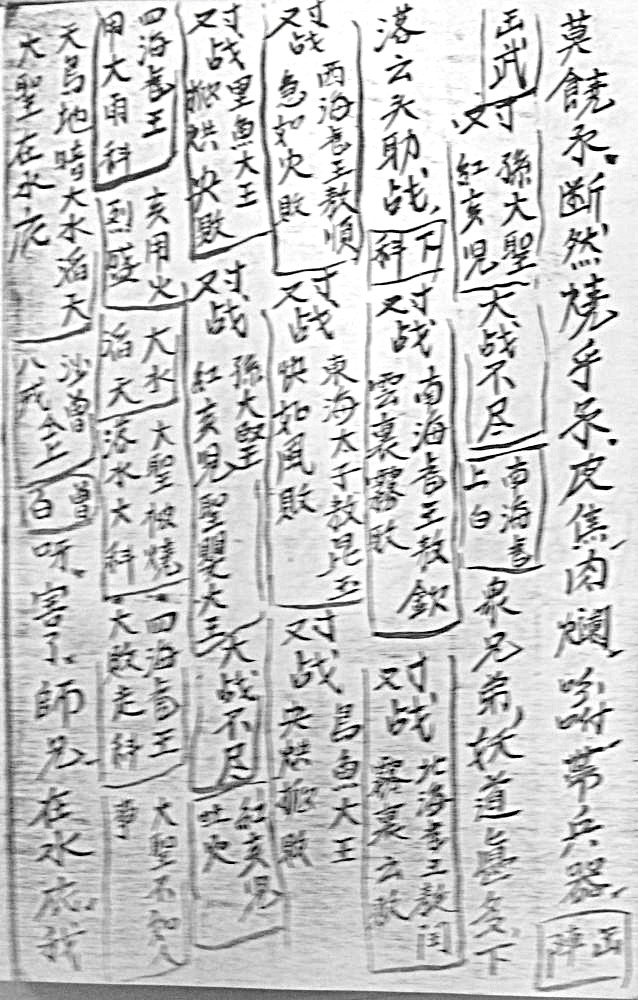 莫饒承、断然燒乎承、皮焦肉爛、吩咐帶兵器、出陣
出武 对 孫大聖 紅亥児 大战不尽 南海竜王上白 衆兄弟、妖道甚多、下
落云头助战、下科 对战 南海竜王敖欽 雲裏霧敗 对战 北海竜王敖閏 霧裏云敗
对战 西海竜王敖順 急如火敗 对战 東海太子敖昆玉 快如風敗 对战 烏魚大王
对战 里魚大王 敗 对战 孫大聖 紅亥児聖嬰大王 大战不尽 紅亥児吐火
四海竜王用大雨科 亥用火 大水滔天 大聖被燒落水大科 四海竜王大敗走科 大聖不知人事
天烏地暗大水滔天 大聖在水底 沙曽八戒仝上 曽白 呀、害了、師兄在水底、我